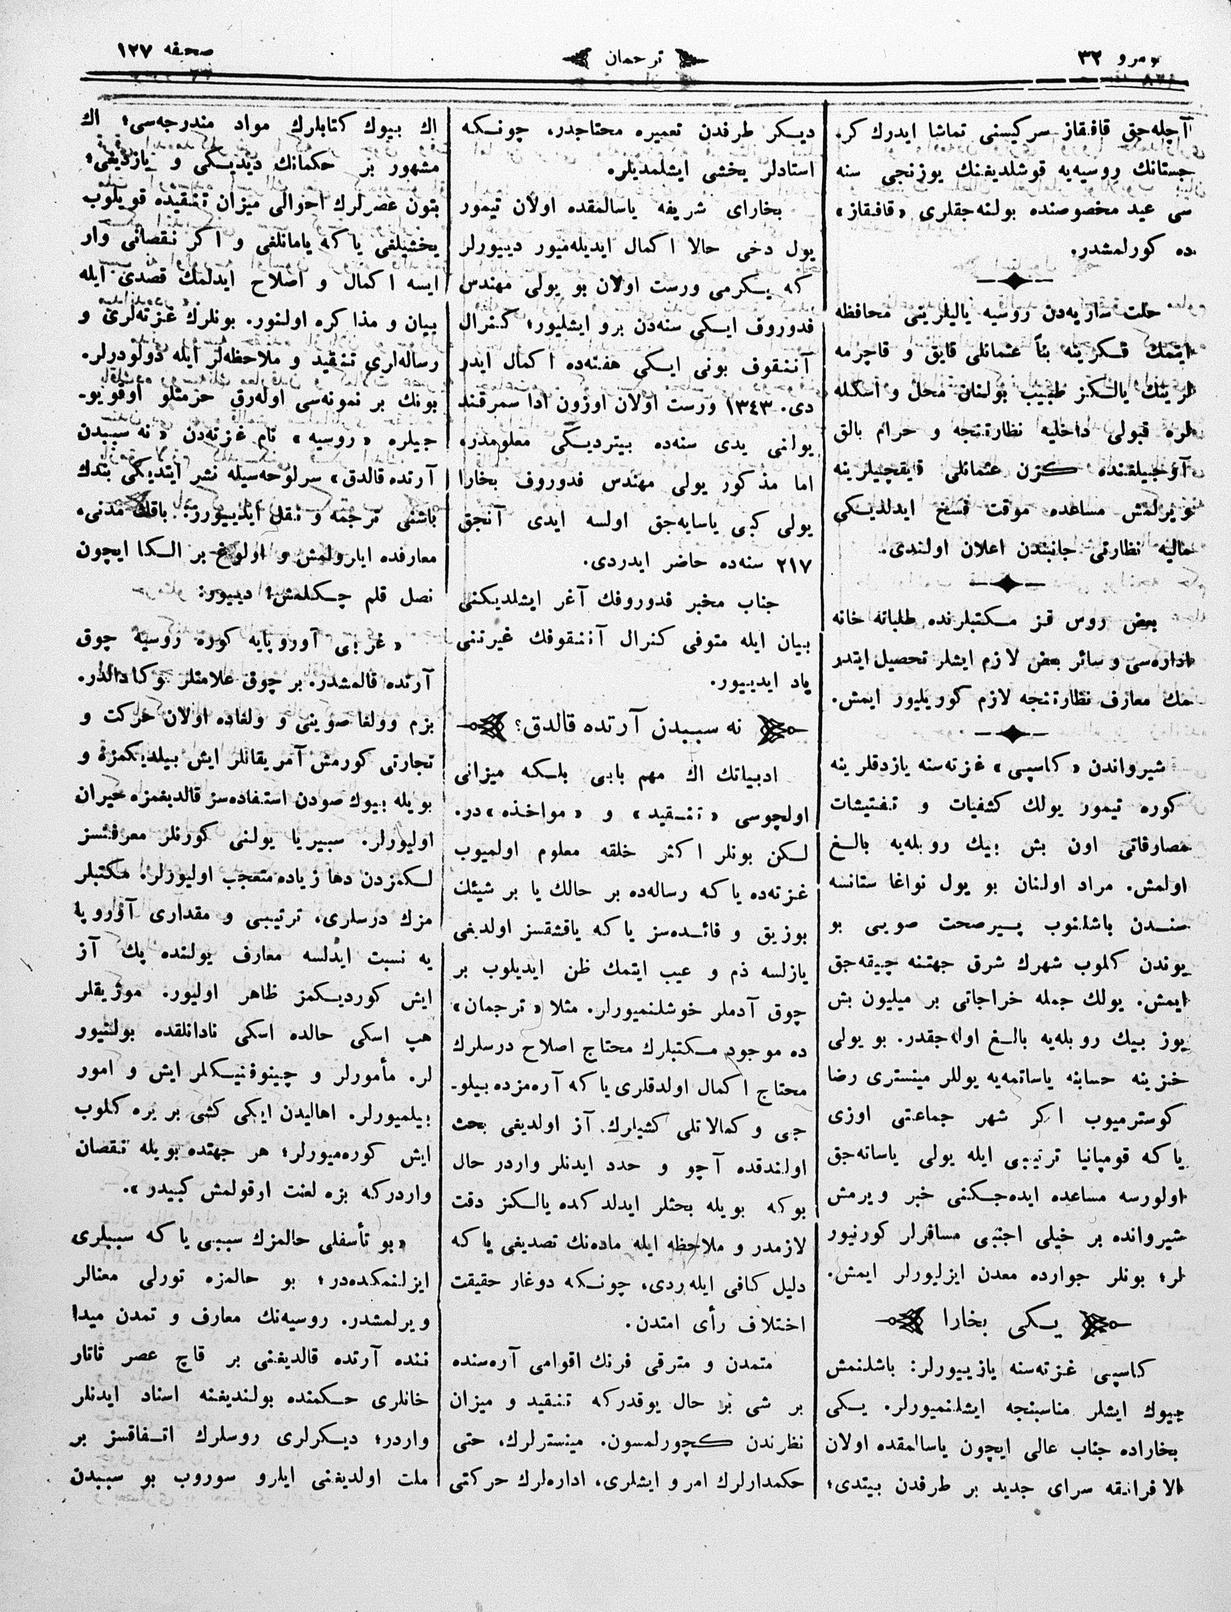 نومرو ٣٢
ترجمان
صحیفه ١٢٧
آچله‌جق قافقاز سرکیسنی تماشا ایدرك کر.
جستانك روسیه‌یه قوشلدیغنك یوزنجی سنه
سی عید مخصوصنده بولنه‌جقلری «قافقاز»
ده کورلمشدر.
حلت ساریه‌دن روسیه یالیلرینی محافظه
ایتمك فکرینه بناً عثمانلی قایق و قاچرمه
لرینك یالکز طبیب بولنان محل و اسکله
لره قبولی داخلیه نظارتنجه و حرام بالق
آوجیلقنده کزن عثمانلی قایقچیلرینه
ویرلمش مساعده موقت فسخ ایدلدیکی
مالیه نظارتی جانبندن اعلان اولندی.
بعض روس قز مکتبلرنده طلباته خانه
اداره‌سی و سائر بعض لازم ایشلر تحصیل ایتدر
مك معارف نظارتنجه لازم کوریلیور ایمش.
شیرواندن «کاسپی» غزته‌سنه یازدقلرینه
کوره تیمور یولك کشفیات و تفتیشات
مصارفاتی اون بش بیك روبله‌یه بالغ
اولمش. مراد اولنان بو یول نواغا ستانسه
سندن باشلنوب پیرصحت صویی بو
یوندن کلوب شهرك شرق جهتنه چیقه‌جق
ایمش. یولك جمله خراجاتی بر میلیون بش
یوز بیك روبله‌یه بالغ اولاجقدر. بو یولی
خزینه حسابنه یاساتمه‌یه یوللر مینستری رضا
کوسترمیوب اکر شهر جماعتی اوزی
یاکه قومپانیا ترتیبی ایله یولی یاساته‌جق
اولورسه مساعده ایده‌جکنی خبر ویرمش
شیروانده بر خیلی اجنبی مسافرلر کورنیور
لر؛ بونلر جوارده معدن ایزلیورلر ایمش.
یکی بخارا
کاسپی غزته‌سنه یازییورلر: باشلنمش
بیوك ایشلر مناسبنجه ایشلنمیورلر. یکی
بخاراده جناب عالی ایچون یاسالمقده اولان
الافرانقه سرای جدید بر طرفدن بیتدی؛
دیکر طرفدن تعمیره محتاجدر. چونکه
استادلر یخشی ایشلمدیلر.
بخارای شریفه یاسالمقده اولان تیمور
یول دخی حالا اکمال ایدیله‌میور دییورلر
که یکرمی ورست اولان بو یولی مهندس
قدوروف ایکی سنه‌دن برو ایشلیور؛ کنرال
آننقوف بونی ایکی هفته‌ده اکمال ایدر
دی. ١٣٤٣ ورست اولان اوزون ادا سمرقند
یولنی یدی سنه‌ده بیتردیکی معلومدر.
اما مذکور یولی مهندس قدوروف بخارا
یولی کبی یاسایه‌جق اولسه ایدی آنجق
٢١٧ سنه‌ده حاضر ایدردی.
جناب مخبر قدوروفك آغر ایشلدیکنی
بیان ایله متوفی کنرال آننقوفك غیرتنی
یاد ایدییور.
نه سببدن آرتده قالدق؟
ادبیاتك اك مهم بابی بلکه میزانی
اولچوسی «تنقید» و «مواخذه» در.
لکن بونلر اکثر خلقه معلوم اولمیوب
غزته‌ده یاکه رساله‌ده بر حالك یا بر شیئك
بوزیق و فائده‌سز یاکه یاقشقسز اولدیغی
یازلسه ذم و عیب ایتمك ظن ایدیلوب بر
چوق آدملر خوشلنمیورلر. مثلا «ترجمان»
ده موجود مکتبلرك محتاج اصلاح درسلرك
محتاج اکمال اولدقلری یاکه آره‌مزده بیلو-
جی و کمالاتلی کشیلرك آز اولدیغی بحث
اولندقده آچو و حدد ایدنلر واردر حال
بوکه بویله بحثلر ایدلدکده یالکز دقت
لازمدر و ملاحظه ایله ماده‌نك تصدیغی یاکه
دلیل کافی ایله‌ردی، چونکه دوغار حقیقت
اختلاف رأی امتدن.
متمدن و مترقی فرنك اقوامی آره‌سنده
بر شی بر حال یوقدرکه تنقید و میزان
نظرندن کچورلمسون. مینسترلرك، حتی
حکمدارلرك امر و ایشلری، اداره‌لرك حرکتی
اك بیوك کتابلرك مواد مندرجه‌سی؛ اك
مشهور بر حکمانك دیدیکی و یازدیغی؛
بتون عصرلرك احوالی میزان تنقیده قویلوب
یخشیلغی یاکه یامانلغی و اکر نقصانی وار
ایسه اکمال و اصلاح ایدلمك قصدی ایله
بیان و مذاکره اولنور. بونلرك غزته‌لری و
رساله‌لری تنقید و ملاحظه‌لر ایله دولودرلر.
بونك بر نمونه‌سی اوله‌رق حرمتلو اوقویو-
جیلره «روسیه» نام غزته‌دن «نه سببدن
آرتده قالدق» سرلوحه‌سیله نشر ایتدیکی بندك
باشنی ترجمه و نقل ایدییورز. باقك مدنی،
معارفده ایلرولمش و اولوغ بر الکا ایچون
نصل قلم چکلمش؛ دییور:
«غربی آوروپایه کوره روسیه چوق
آرتده قالمشدر. بر چوق علامتلر بوکا دالدر.
بزم وولغا صوینی و ولغاده اولان حرکت و
تجارتی کورمش آمریقانلر ایش بیلدیکمزه و
بویله بیوك صودن استفاده‌سز قالدیغمزه حیران
اولیورلر. سیبریا یولنی کورنلر معرفتسز
لکمزدن دها زیاده متعجب اولیورلر. مکتبلر
مزك درسلری، ترتیبی و مقداری آوروپا
یه نسبت ایدلسه معارف یولنده پك آز
ایش کوردیکمز ظاهر اولیور. موژیقلر
هپ اسکی حالده اسکی نادانلقده بولنیور
لر. مأمورلر و چینوفنیکلر ایش و امور
بیلمیورلر. اهالیدن ایکی کشی بر یره کلوب
ایش کوره‌میورلر؛ هر جهتده بویله نقصان
واردرکه بزه لعنت اوقولمش کبیدر».
«بو تأسفلی حالمزك سببی یاکه سببلری
ایزلنمکده‌در؛ بو حالمزه تورلی معنالر
ویرلمشدر. روسیه‌نك معارف و تمدن میدا
ننده آرتده قالدیغنی بر قاچ عصر تاتار
خانلری حکمنده بولندیغنه اسناد ایدنلر
واردر؛ دیکرلری روسلرك اتفاقسز بر
ملت اولدیغنی ایلرو سوروب بو سببدن